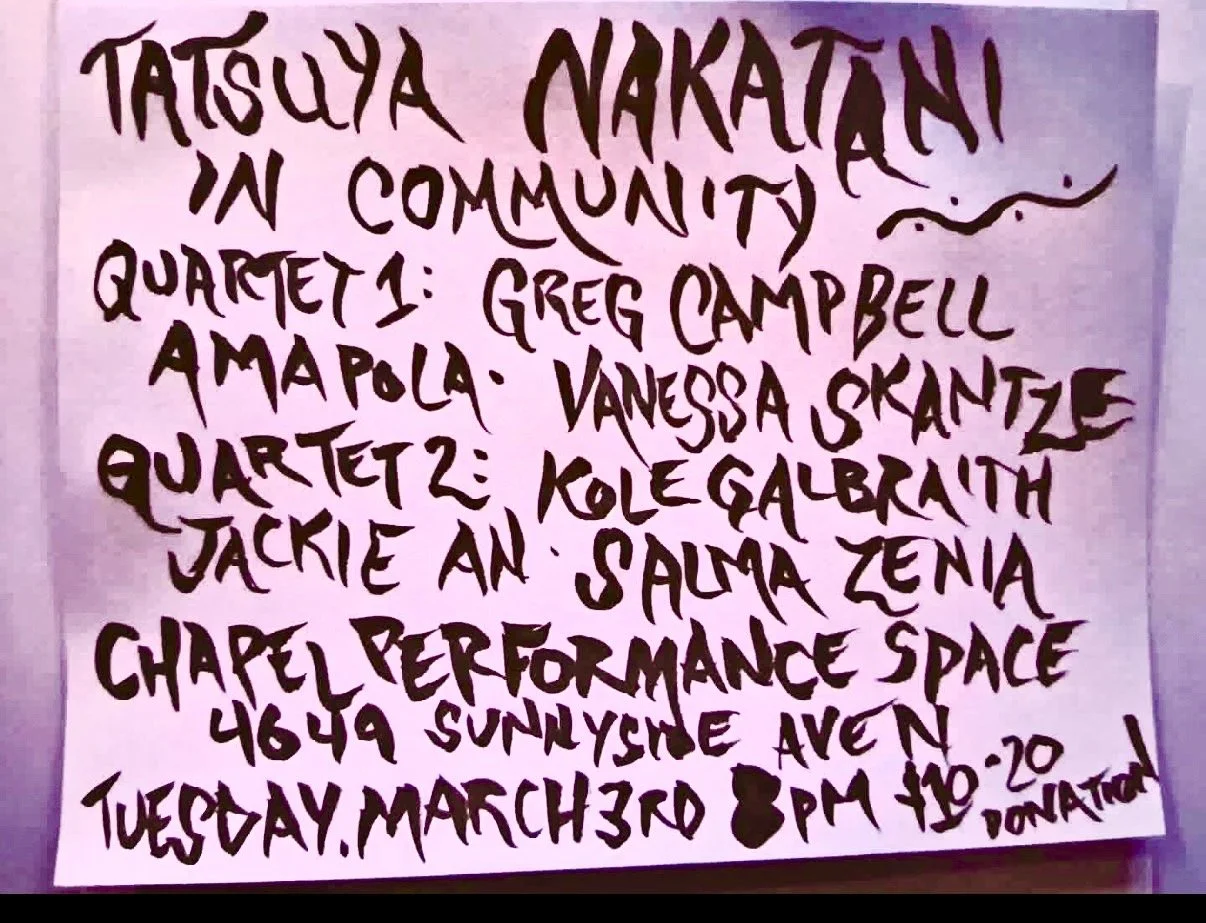 TATSUYA NAKATANI
IN COMMUNITY
QUARTET 1: GREG CAMPBELL
AMAPOLA · VANESSA SKANTZE
QUARTET 2: KOLE GALBRAITH
JACKIE AN · SALMA ZENIA
CHAPEL PERFORMANCE SPACE
4649 SUNNYSIDE AVE N
TUESDAY. MARCH 3RD 8PM $10-20
DONATION